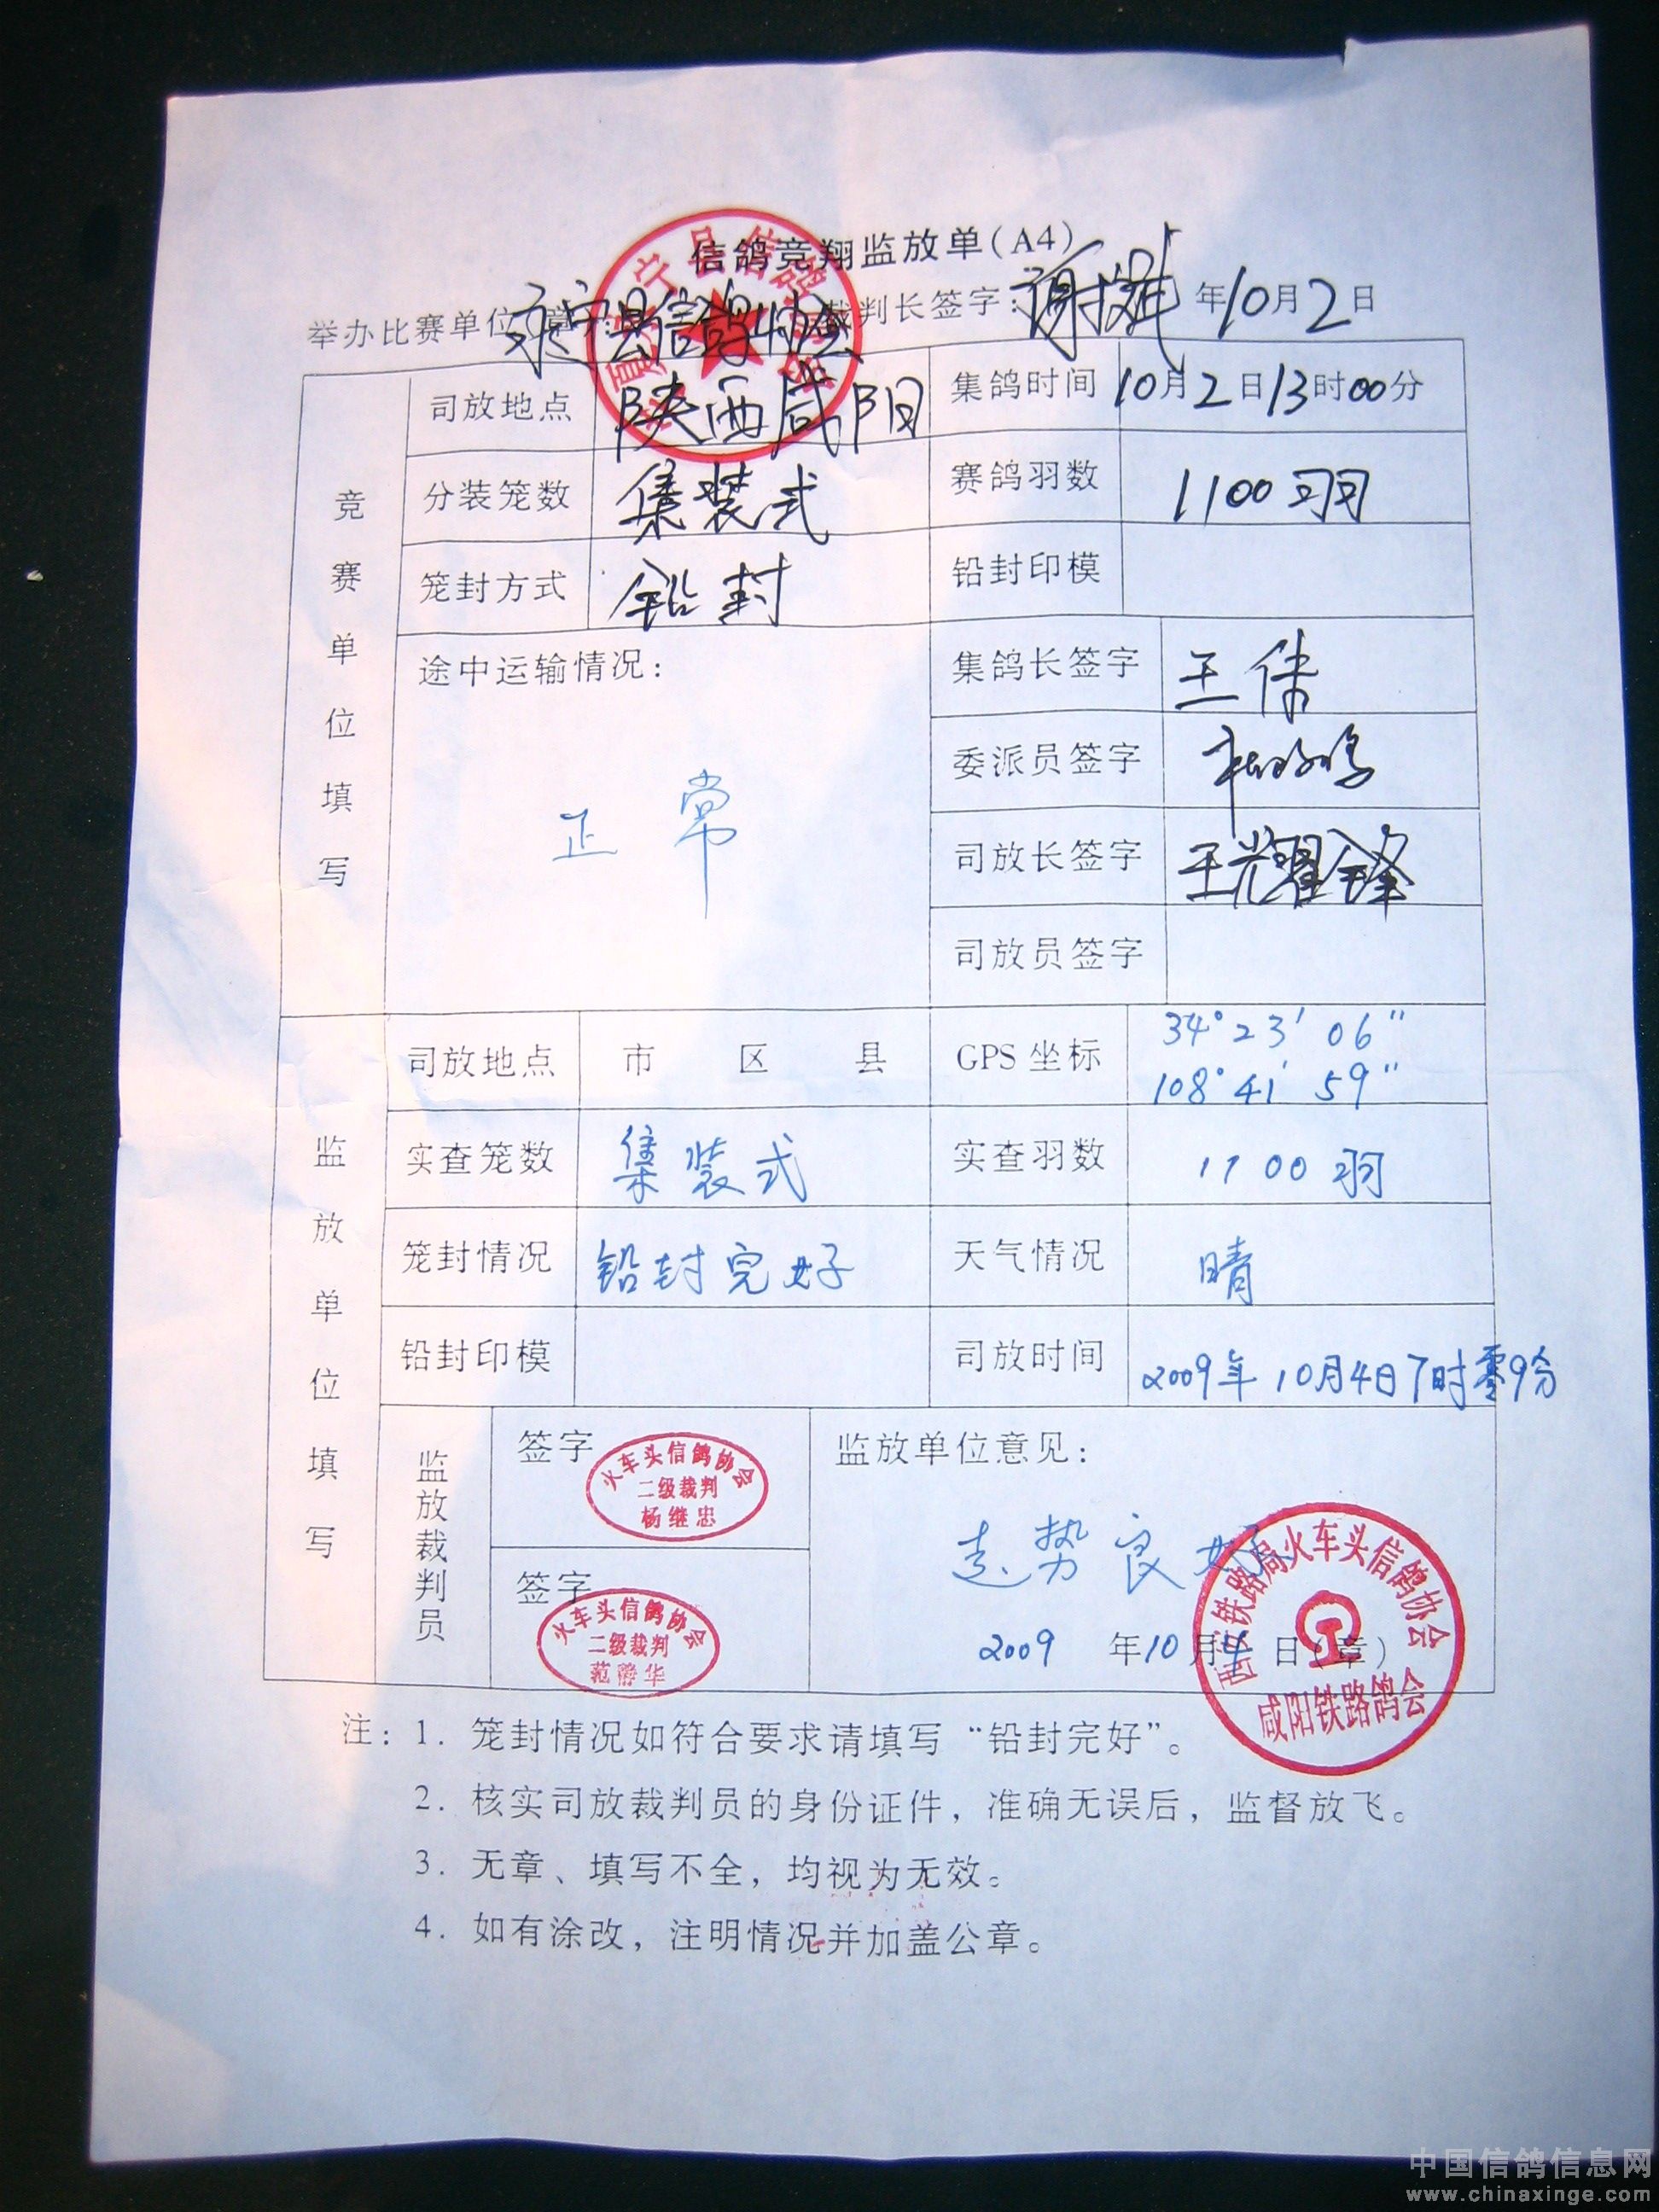 信鸽竞翔监放单(A4)
举办比赛单位(章): 永宁县信鸽协会 裁判长签字: 年10月2日
竞赛单位填写
司放地点 陕西咸阳 集鸽时间 10月2日13时00分
分装笼数 集装式 赛鸽羽数 1100羽
笼封方式 铅封 铅封印模
途中运输情况: 正常
集鸽长签字 王
委派员签字
司放长签字 王耀锋
司放员签字
监放单位填写
司放地点 市 区 县 GPS坐标 34°23′06″
108°41′59″
实查笼数 集装式 实查羽数 1100羽
笼封情况 铅封完好 天气情况 晴
铅封印模 司放时间 2009年10月4日7时零9分
监放裁判员
签字 火车头信鸽协会
二级裁判
杨继忠
签字 火车头信鸽协会
二级裁判
范静华
监放单位意见:
走势良好
2009年10月4日(章)
西安铁路局火车头信鸽协会
咸阳铁路鸽会
注: 1. 笼封情况如符合要求请填写“铅封完好”。
2. 核实司放裁判员的身份证件，准确无误后，监督放飞。
3. 无章、填写不全，均视为无效。
4. 如有涂改，注明情况并加盖公章。
中国信鸽信息网
www.chinaxinge.com